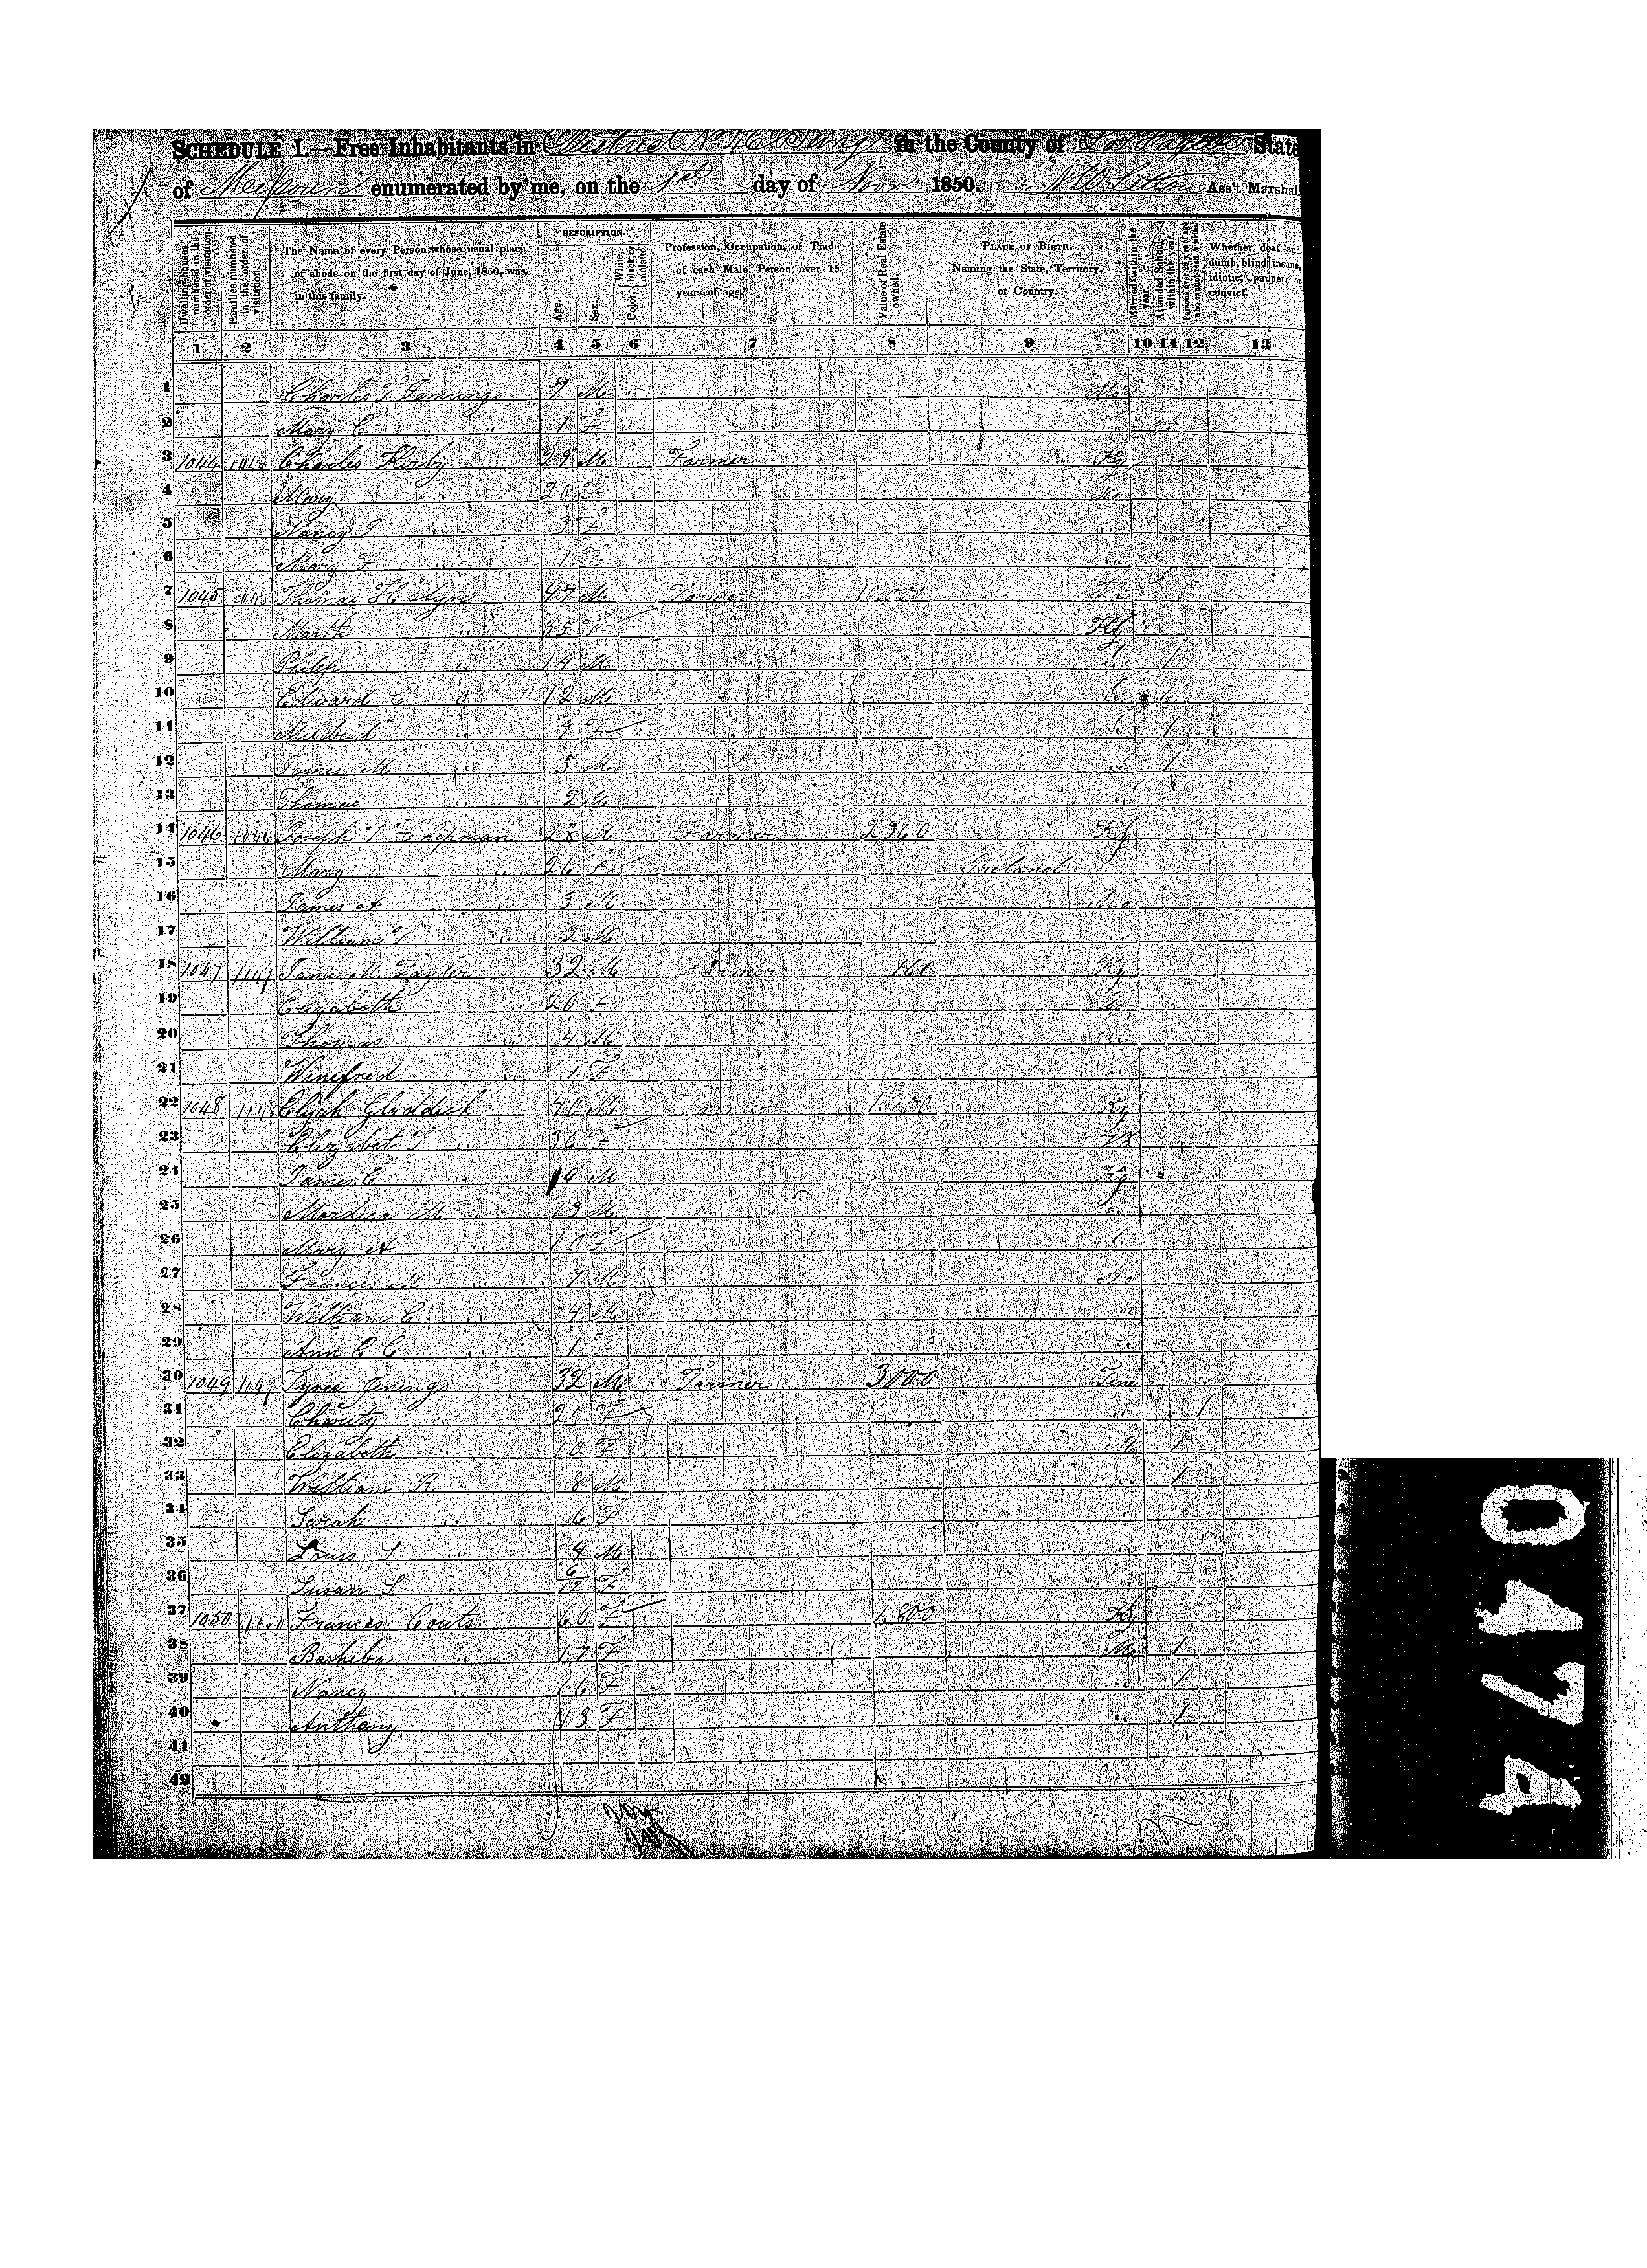 SCHEDULE I.—Free Inhabitants in District No 46 Being in the County of La Fayette State
of Missouri enumerated by me, on the 1st day of Novr 1850. Ass't Marshal.
Dwelling-houses numbered in the order of visitation.
Families numbered in the order of visitation.
The Name of every Person whose usual place of abode on the first day of June, 1850, was in this family.
DESCRIPTION.
Age.
Sex.
Color, White, black, or mulatto.
Profession, Occupation, or Trade of each Male Person over 15 years of age.
Value of Real Estate owned.
PLACE OF BIRTH. Naming the State, Territory, or Country.
Married within the year.
Attended School within the year.
Persons over 20 y'rs of age who cannot read & write.
Whether deaf and dumb, blind, insane, idiotic, pauper, or convict.
1 2 3 4 5 6 7 8 9 10 11 12 13
1 Charles T Jennings 7 M Mo
2 Mary E " 1 F
3 1044 1044 Charles Kirby 29 M Farmer Ky
4 Mary 20 F Mo
5 Nancy T 3 F "
6 Mary F " 1 F "
7 1045 1045 Thomas H Ayre 47 M Farmer 10,000 Va
8 Marth " 35 F Ky
9 Philip " 14 M " 1
10 Edward C " 12 M " 1
11 Mildred " 9 F " 1
12 James M " 5 M " 1
13 Thomas " 2 M "
14 1046 1046 Joseph T Chapman 28 M Farmer 2,360 Ky
15 Mary " 26 F Ireland
16 James A " 3 M Mo
17 William T " 2 M "
18 1047 1047 James M Tayler 32 M Farmer 460 Ky
19 Elizabeth " 20 F Mo
20 Thomas " 4 M "
21 Winefred " 1 F "
22 1048 1048 Elijah Gladdish 40 M Farmer Ky
23 Elizabet T " 36 F Va
24 James C " 14 M Ky
25 M " 13 M "
26 Mary A " 10 F "
27 Frances M " 7 M Mo
28 William C " 4 M "
29 Ann E C " 1 F "
30 1049 1049 Tyree Jenings 32 M Farmer 3000 Tene
31 Charity " 25 F " 1
32 Elizabeth " 10 F Mo 1
33 William R 8 M " 1
34 Sarah " 6 F
35 S " 4 M "
36 Susan S " 6/12 F "
37 1050 1050 Frances Couts 60 F 1,800 Ky
38 Basheba " 17 F Mo 1
39 Nancy " 16 F " 1
40 Anthony 13 F " 1
41
42
0474